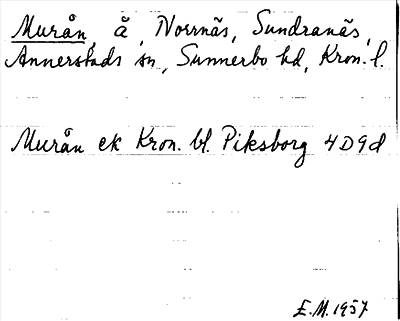 Murån, å, Norrnäs, Sundranäs,
Annerstads sn, Sunnerbo hd, Kron. l.
Murån ek Kron. bl. Piksborg 4D9d
E.M. 1957